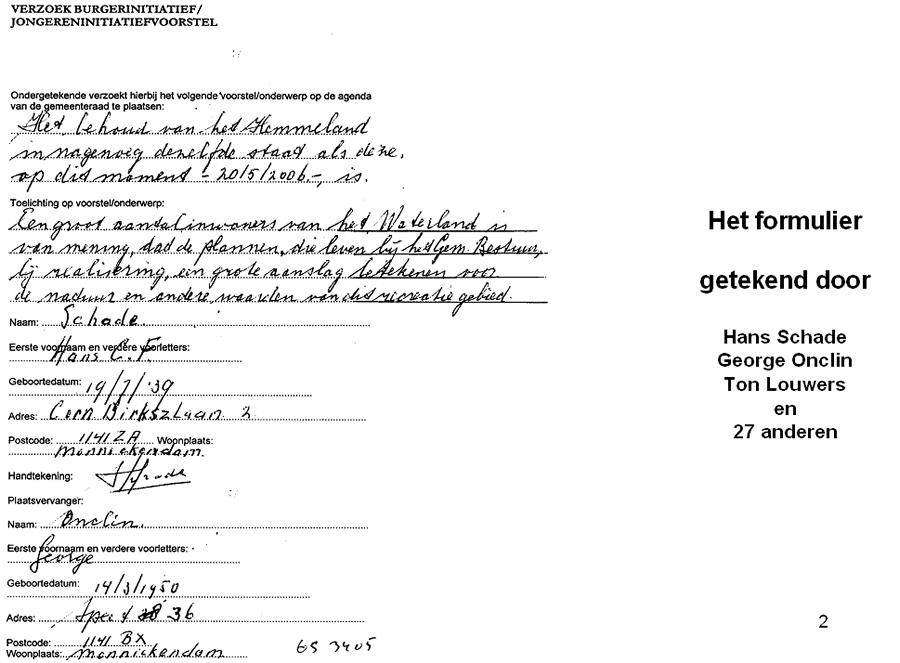 VERZOEK BURGERINITIATIEF/
JONGERENINITIATIEFVOORSTEL
Ondergetekende verzoekt hierbij het volgende voorstel/onderwerp op de agenda
van de gemeenteraad te plaatsen:
Het behoud van het Hemmeland
in nagenoeg dezelfde staat als deze,
op dit moment - 20/5/2006 -, is.
Toelichting op voorstel/onderwerp:
Een groot aantal inwoners van het Waterland is
van mening, dat de plannen, die leven bij het Gem. Bestuur,
bij realisering, een grote aanslag betekenen voor
de natuur en andere waarden van dit recreatie gebied.
Naam: Schade.
Eerste voornaam en verdere voorletters:
Hans C. F.
Geboortedatum: 19/7/'39
Adres: Corn Dirkszlaan 2
Postcode: 1141 ZA Woonplaats:
Monnickendam.
Handtekening: Schade
Plaatsvervanger:
Naam: Onclin.
Eerste voornaam en verdere voorletters:
George
Geboortedatum: 14/3/1950
Adres: 36
Postcode: 1141 BX
Woonplaats: Monnickendam
65 3405
Het formulier
getekend door
Hans Schade
George Onclin
Ton Louwers
en
27 anderen
2